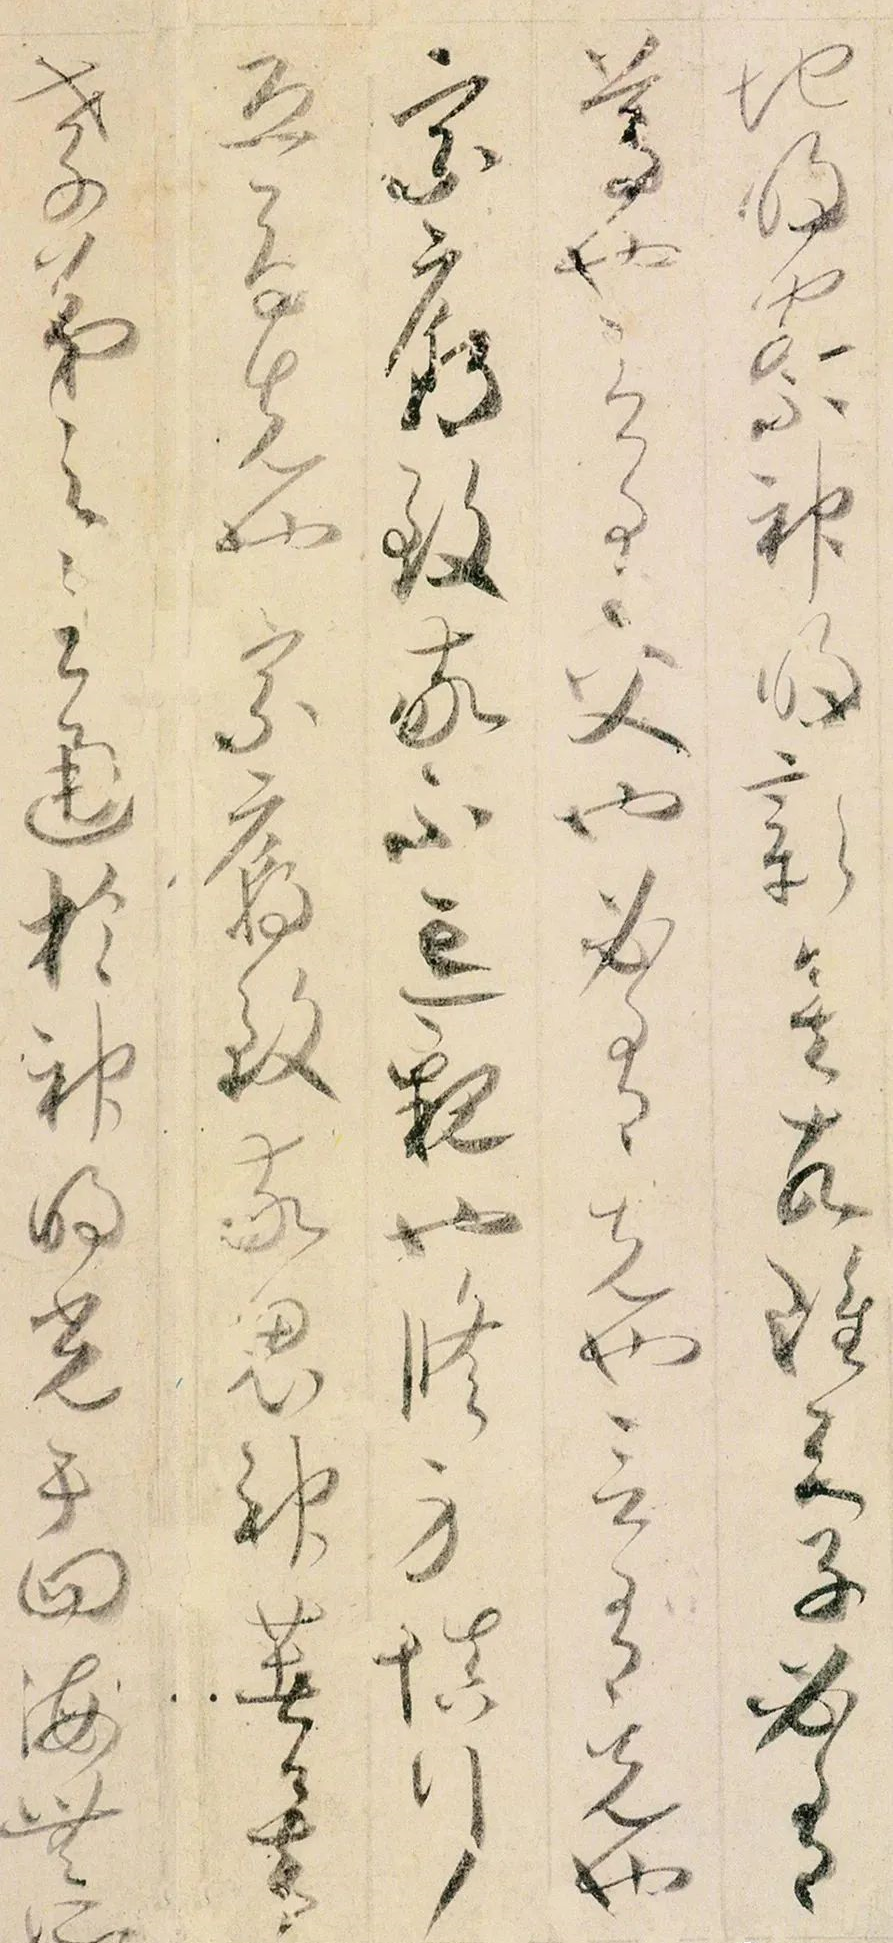 地明察神明彰矣故雖天子必有
尊也言有父也必有先也言有兄也
宗廟致敬不忘親也修身慎行
恐辱先也宗廟致敬鬼神著矣
孝弟之至通於神明光于四海無所